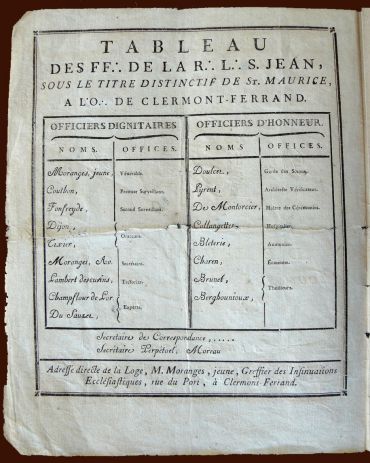 TABLEAU
DES FF∴ DE LA R∴ L∴ S. JEAN,
SOUS LE TITRE DISTINCTIF DE ST. MAURICE,
A L'O∴ DE CLERMONT-FERRAND.
OFFICIERS DIGNITAIRES
NOMS. OFFICES.
Moranges, jeune, Vénérable.
Couthon, Premier Surveillant.
Fonfreyde, Second Surveillant.
Dijon,
Orateurs.
Texier,
Moranges, Av. Secrétaire.
Lambert descureins, Trésorier.
Champflour de Lor
Experts.
Du Sauzet,
OFFICIERS D'HONNEUR.
NOMS. OFFICES.
Doulcet, Garde des Sceaux.
Lyrent, Architecte Vérificateur.
Des Montorcier, Maître des Cérémonies.
Collangettes Hospitalier.
Bleterie, Aumônier.
Choren, Économe.
Brunet,
Thuilleurs.
Berghounioux,
Secretaire de Correspondance, ......
Secretaire Perpétuel, Moreau
Adresse directe de la Loge, M. Moranges, jeune, Greffier des Insinuations
Ecclésiastiques, rue du Port, à Clermont-Ferrand.